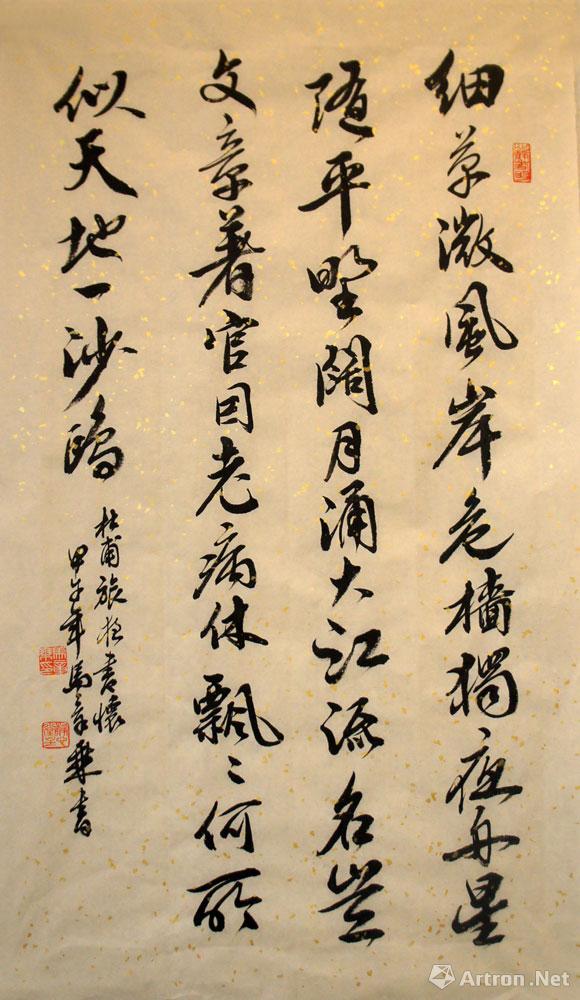 細草微風岸危檣獨夜舟星
隨平野闊月涌大江流名豈
文章著官因老病休飄〻何所
似天地一沙鷗
杜甫旅夜書懷
甲午年馬書
Artron.Net